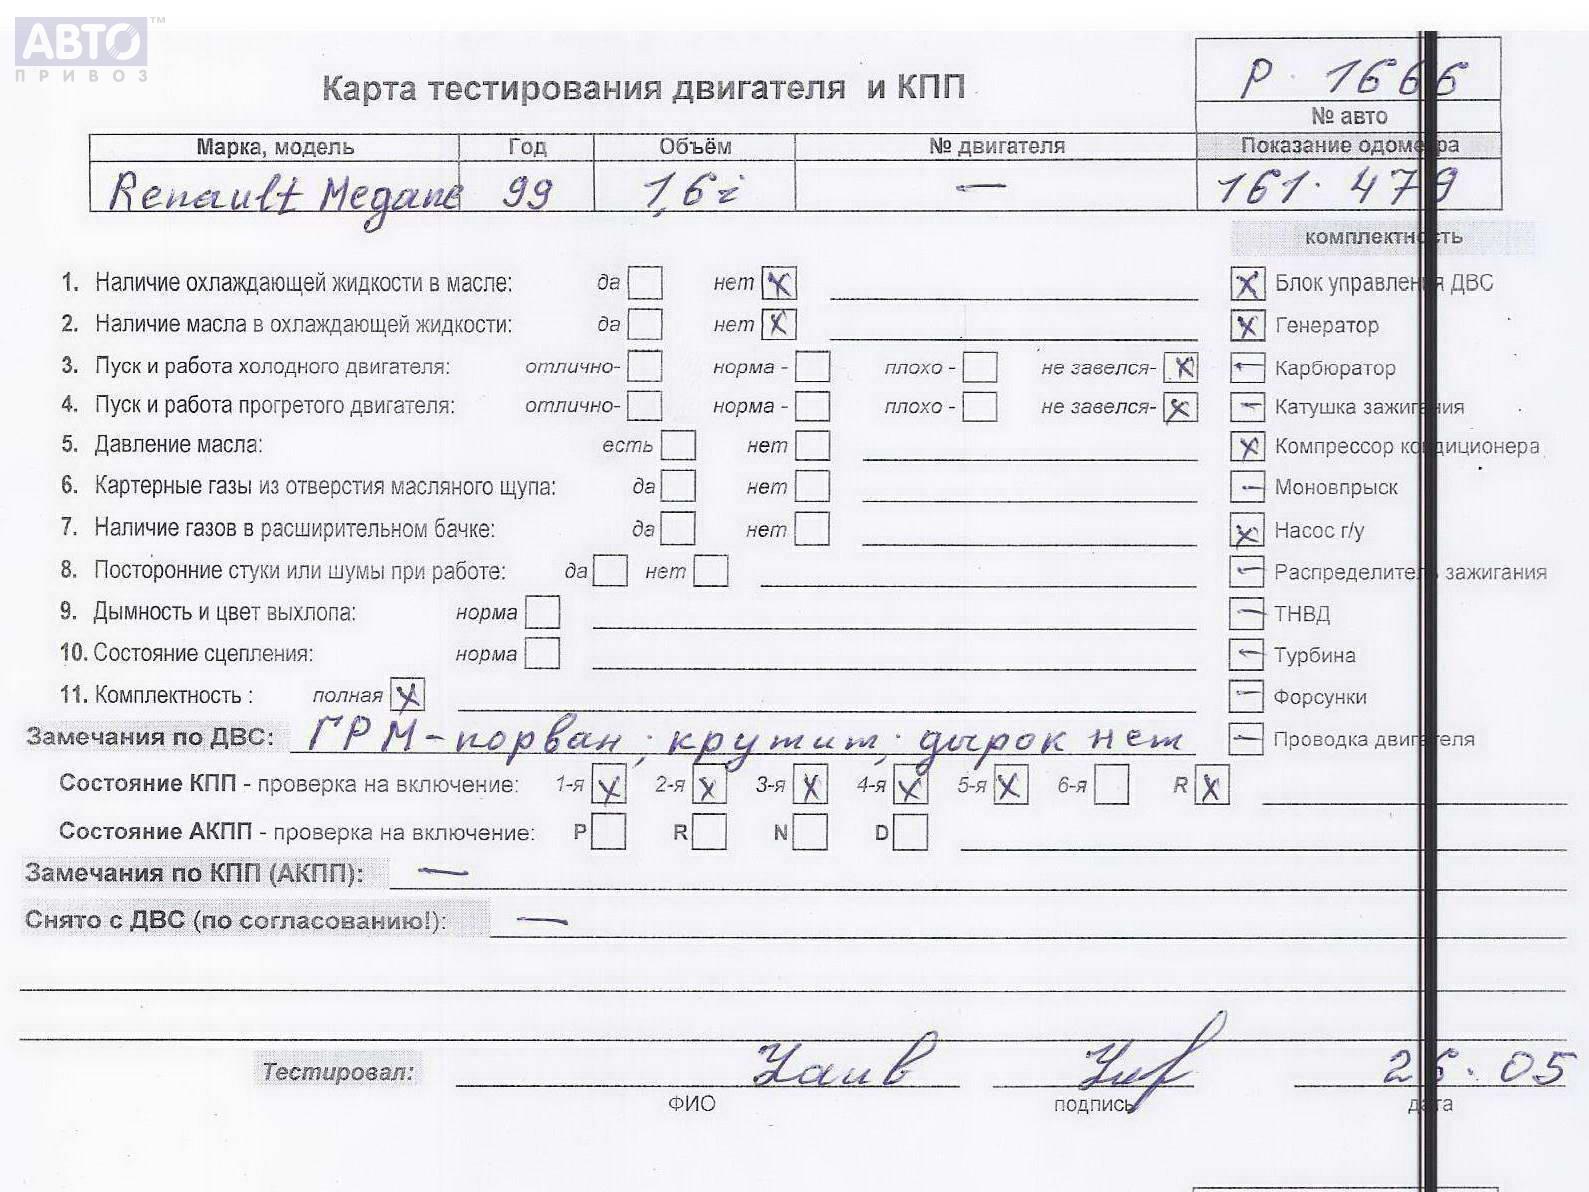 АВТО™
ПРИВОЗ
Р 1666
Карта тестирования двигателя и КПП
№ авто
Марка, модель Год Объём № двигателя Показание одометра
Renault Megane 99 1,6i — 161.479
комплектность
1. Наличие охлаждающей жидкости в масле: да нет X X Блок управления ДВС
2. Наличие масла в охлаждающей жидкости: да нет X X Генератор
3. Пуск и работа холодного двигателя: отлично- норма - плохо - не завелся- X — Карбюратор
4. Пуск и работа прогретого двигателя: отлично- норма - плохо - не завелся- X — Катушка зажигания
5. Давление масла: есть нет X Компрессор кондиционера
6. Картерные газы из отверстия масляного щупа: да нет — Моновпрыск
7. Наличие газов в расширительном бачке: да нет X Насос г/у
8. Посторонние стуки или шумы при работе: да нет — Распределитель зажигания
9. Дымность и цвет выхлопа: норма — ТНВД
10. Состояние сцепления: норма — Турбина
11. Комплектность : полная X — Форсунки
Замечания по ДВС: ГРМ-порван; крутит; дырок нет — Проводка двигателя
Состояние КПП - проверка на включение: 1-я X 2-я X 3-я X 4-я X 5-я X 6-я R X
Состояние АКПП - проверка на включение: P R N D
Замечания по КПП (АКПП): —
Снято с ДВС (по согласованию!): —
Тестировал: 26.05
ФИО подпись дата